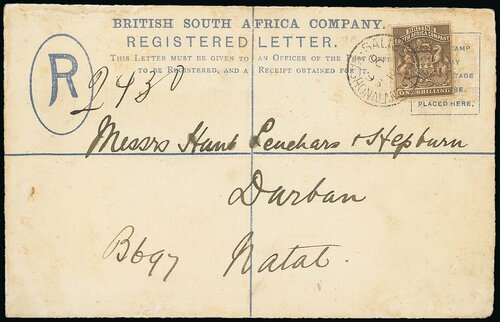 BRITISH SOUTH AFRICA COMPANY.
REGISTERED LETTER.
THIS LETTER MUST BE GIVEN TO AN OFFICER OF THE POST OFFICE
TO BE REGISTERED, AND A RECEIPT OBTAINED FOR
R
2430
SOUTH AFRICA COMPANY
ONE SHILLING
PLACED HERE,
Messrs Hunt Leuchars & Hepburn
Durban
B697
Natal.